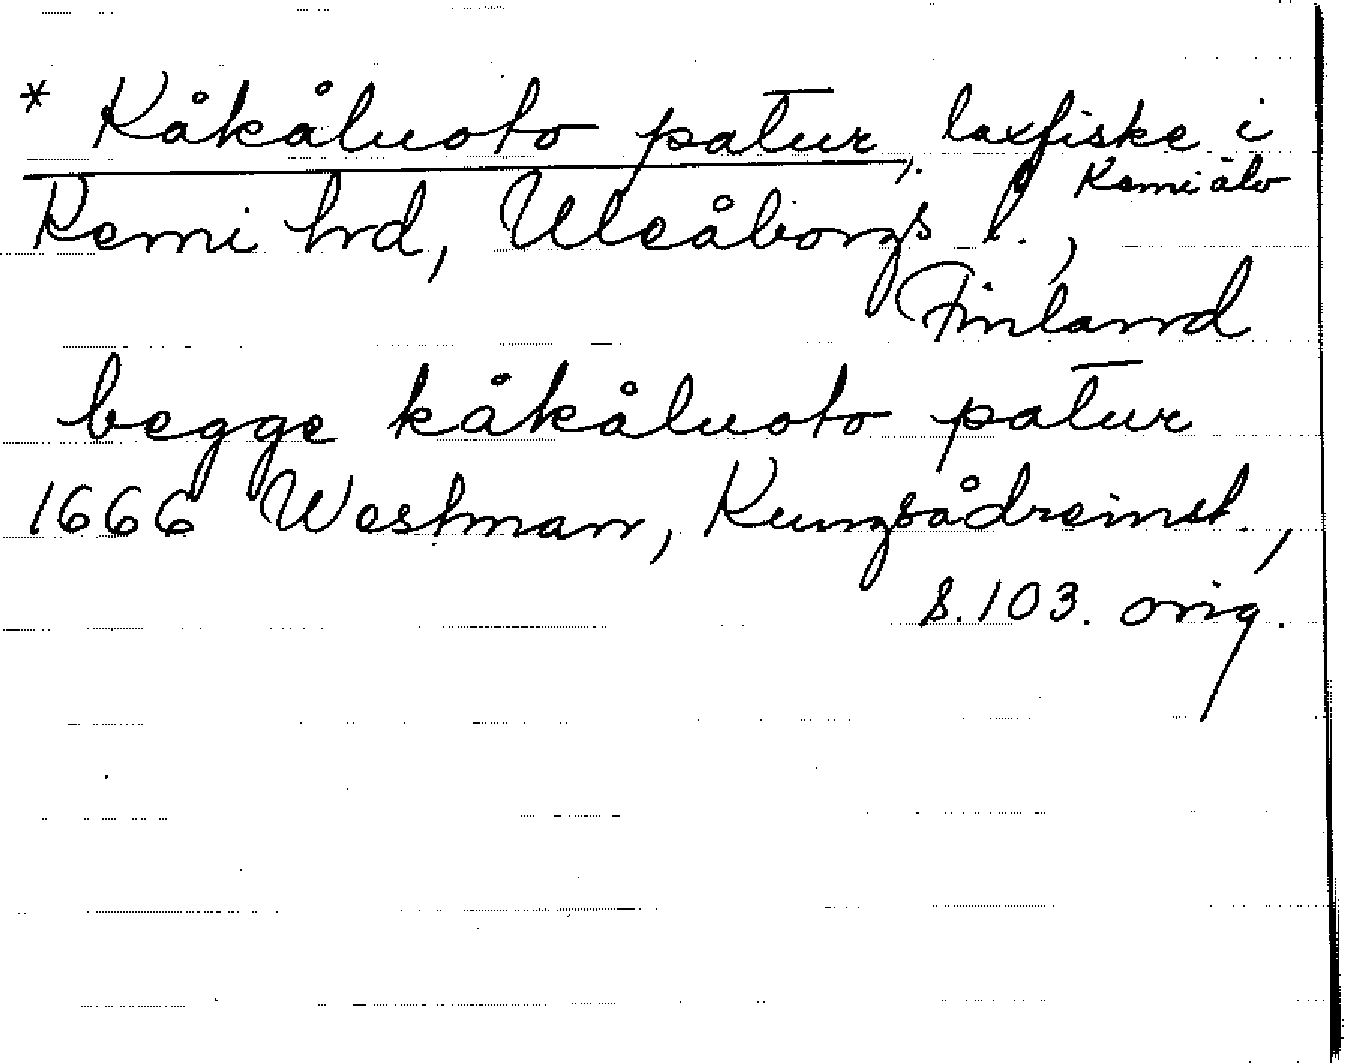 * Kåkåluoto patur, laxfiske i
Kemi älv
Kemi hrd, Uleåborgs l.,
Finland
begge kåkåluoto patur
1666 Westman, Kungsådreinst.,
s. 103. orig.